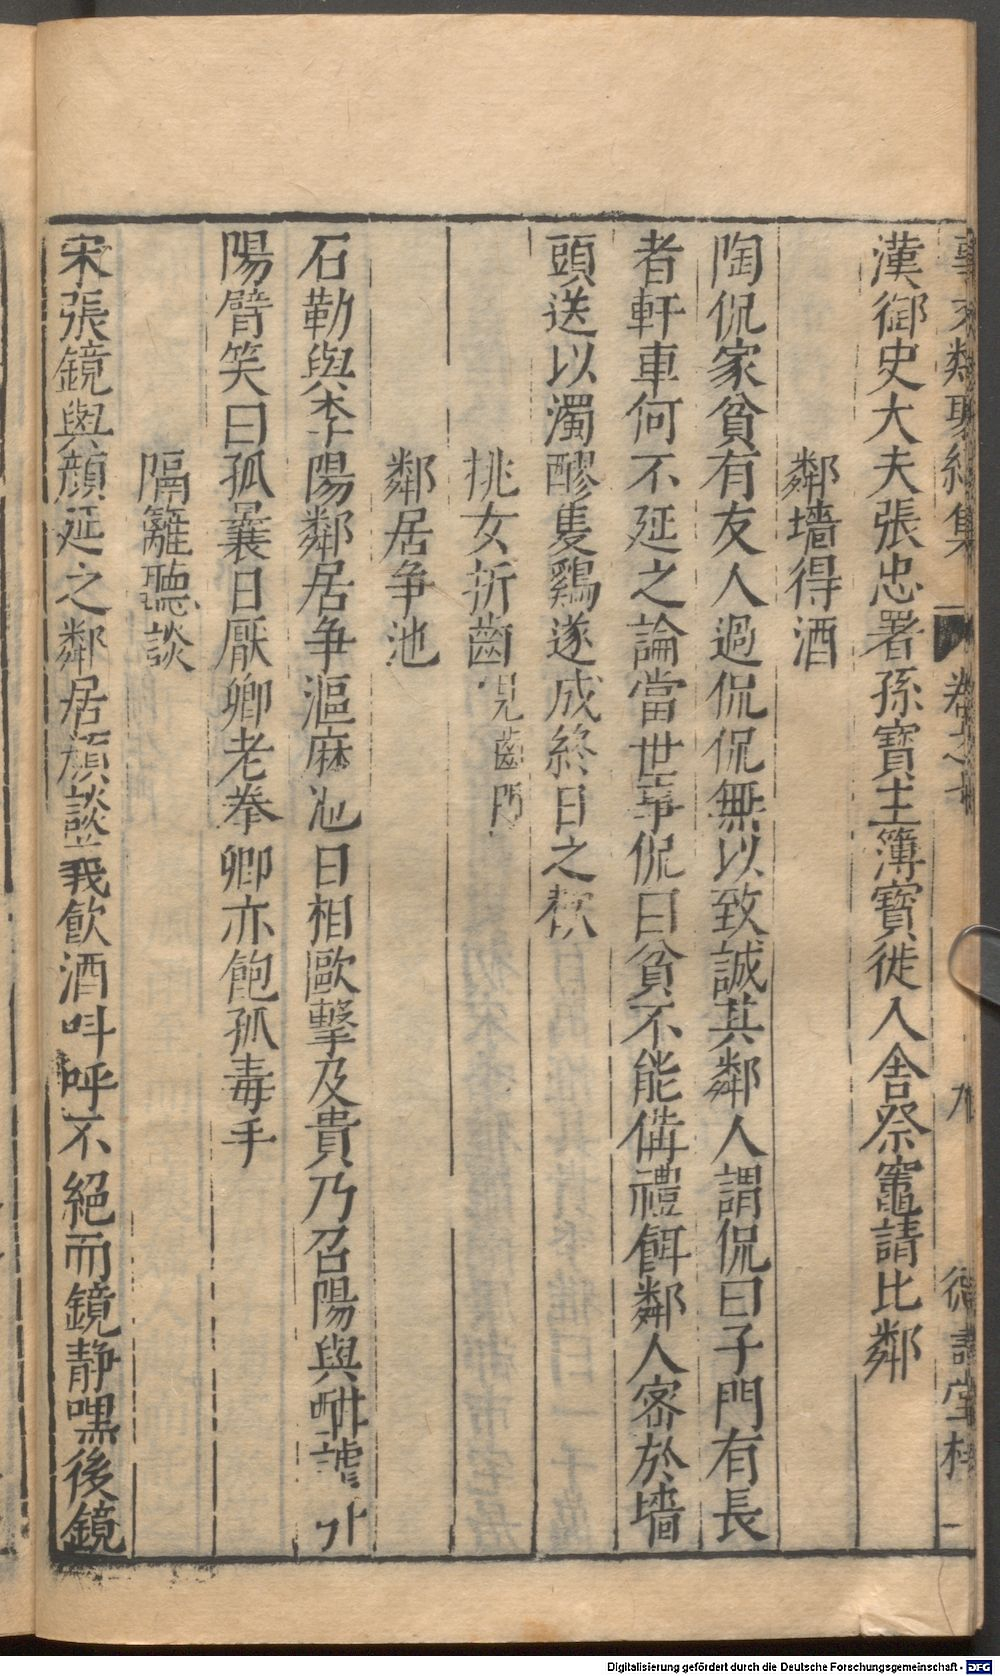 事文類聚續集 卷之十 九 德壽堂梓
漢御史大夫張忠署孫寶主簿寶徙入舍祭竈請比鄰
鄰墻得酒
陶侃家貧有友人過侃侃無以致誠其鄰人謂侃曰子門有長
者軒車何不延之論當世事侃曰貧不能備禮餌鄰人密於墻
頭送以濁醪隻鷄遂成終日之歡
挑女折齒見齒門
鄰居争池
石勒與李陽鄰居争漚麻池日相毆擊及貴乃召陽與酣謔引
陽臂笑曰孤曩日厭卿老拳卿亦飽孤毒手
隔籬聽談
宋張鏡與顔延之鄰居顔談義飲酒呌呼不絕而鏡静嘿後鏡
Digitalisierung gefördert durch die Deutsche Forschungsgemeinschaft - DFG